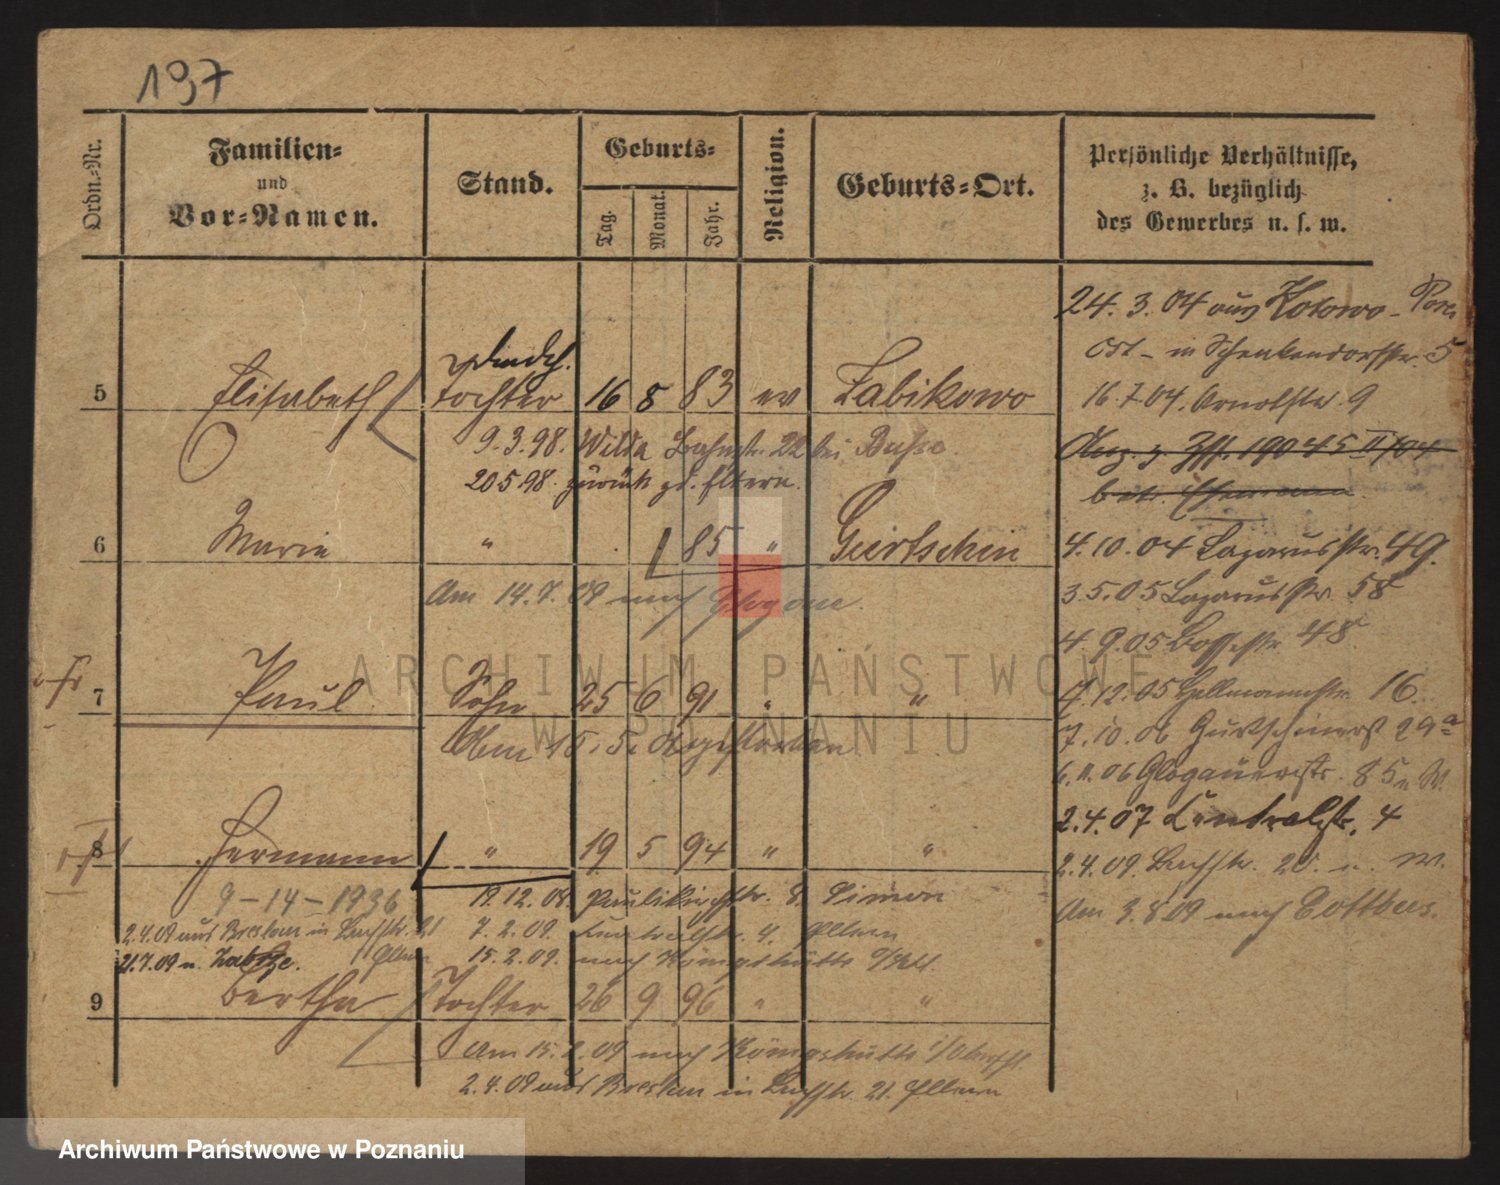 197
Ordn.-Nr.
Familien-
und
Vor-Namen.
Stand.
Geburts-
Tag.
Monat.
Jahr.
Religion.
Geburts-Ort.
Persönliche Verhältnisse,
z. B. bezüglich
des Gewerbes u. s. w.
24. 3. 04 aus Kotowo - Posen
Ost - in Schenkendorfstr. 5
5 Elisabeth Tochter 16 8 83 ev Zabikowo
16.7.04. Arndtstr. 9
9.3.98. Wilda Bahnstr. 22 bei Busse.
20 5 98. zurück zd. Eltern.
6 Maria " 85 " Gurtschin
4.10.04 Lazarusstr. 49.
Am 14.7.09 nach Glogau.
3.5.05 Lazarusstr 58
4.9.05 48
7 Paul Sohn 25 6 91 " "
7.12.05 Hellmannstr. 16.
7.10.06 Gurtschinerst 29a
gestorben
6.11.06 Glogauerstr. 85
2.4.07 Centralstr. 4
8 Hermann " 19 5 94 " "
2.4.09 20.
9-14-1936
19.12.08. Paulikirchstr. 8. Simon
Am 3.8.09 nach Cottbus.
2.4.09 aus Breslau in 21
7.2.09. Centralstr. 4. Eltern
21.7.09 n. Zabrze. Eltern
15.2.09. nach Königshütte
9 Bertha Tochter 26 9 96 " "
Am 15.2.09 nach Königshütte
2.4.09 aus Breslau in 21. Eltern
ARCHIWUM PAŃSTWOWE
W POZNANIU
Archiwum Państwowe w Poznaniu